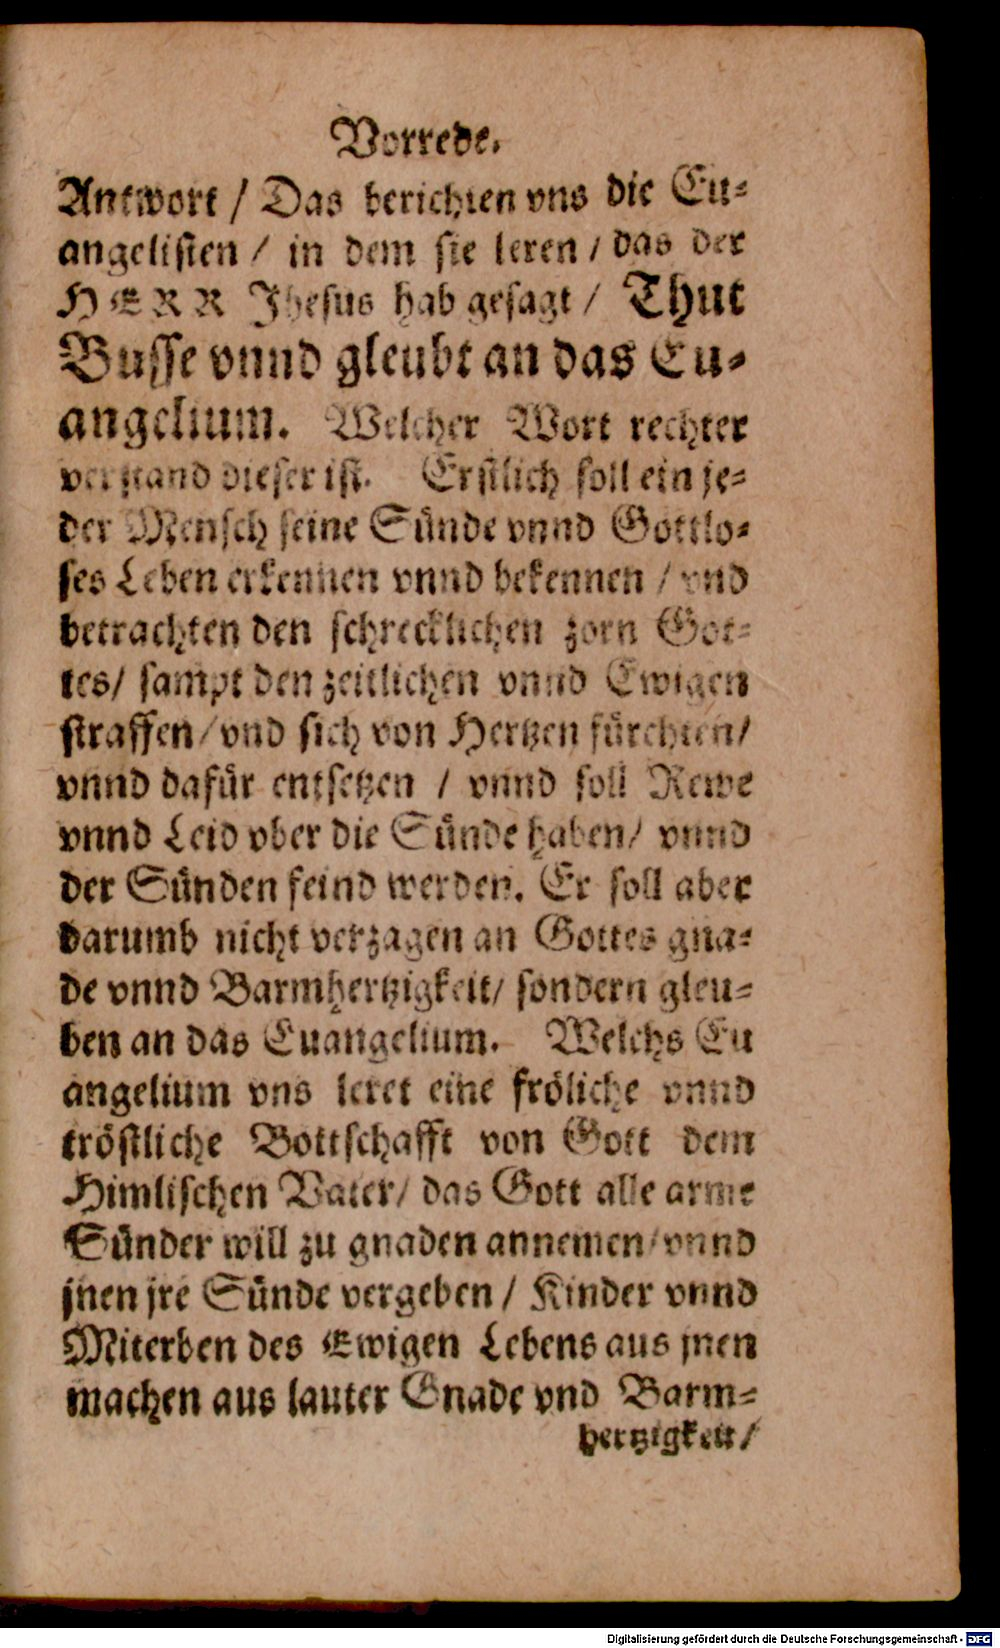 Vorrede.
Antwort / Das berichten vns die Eu-
angelisten / in dem sie leren / das der
HERR Jhesus hab gesagt / Thut
Busse vnnd gleubt an das Eu-
angelium. Welcher Wort rechter
verstand dieser ist. Erstlich soll ein je-
der Mensch seine Sünde vnnd Gottlo-
ses Leben erkennen vnnd bekennen / vnd
betrachten den schrecklichen zorn Got-
tes / sampt den zeitlichen vnnd Ewigen
straffen / vnd sich von Hertzen fürchten /
vnnd dafür entsetzen / vnnd soll Rewe
vnnd Leid vber die Sünde haben / vnnd
der Sünden feind werden. Er soll aber
darumb nicht verzagen an Gottes gna-
de vnnd Barmhertzigkeit / sondern gleu-
ben an das Euangelium. Welchs Eu
angelium vns leret eine fröliche vnnd
tröstliche Bottschafft von Gott dem
Himlischen Vater / das Gott alle arme
Sünder will zu gnaden annemen / vnnd
jnen jre Sünde vergeben / Kinder vnnd
Miterben des Ewigen Lebens aus jnen
machen aus lauter Gnade vnd Barm-
hertzigkeit /
Digitalisierung gefördert durch die Deutsche Forschungsgemeinschaft - DFG